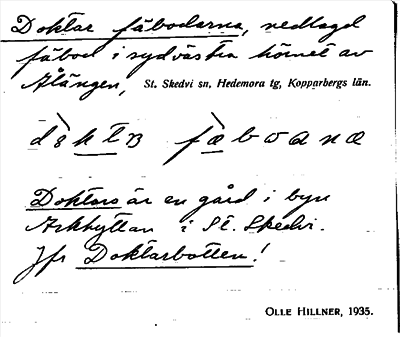 Doktar fäbodarna, nedlagd
fäbod i sydvästra hörnet av
Älängen, St. Skedvi sn, Hedemora tg, Kopparbergs län.
Doktars är en gård i byn
Arkhyttan i St. Skedvi.
Jfr Doktarbotten!
OLLE HILLNER, 1935.